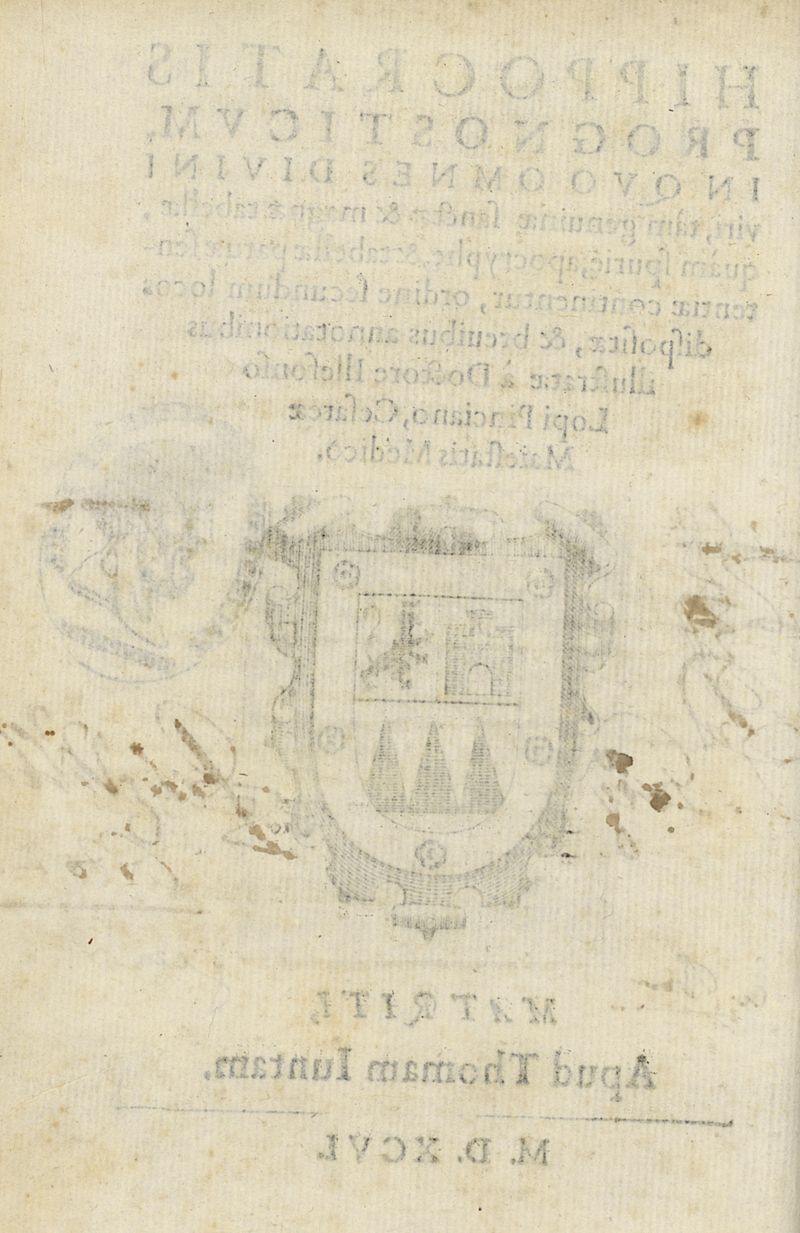 HIPPOCRATIS
PROGNOSTICVM,
IN QVO OMNES DIVINI
viri, tám genuinæ sanctæ & magnæ tabellæ,
quám spurię, apocryphę, & tabellæ paruæ sen-
tentiæ continentur, ordine secundum locos
dispositæ, & breuibus annotationibus
illustratæ á Doctore Ildefonso
Lopi Pinciano, Cesareæ
Maiestatis Medico.
MATRITI,
Apud Thomam Iuntam.
M. D. XCVI.